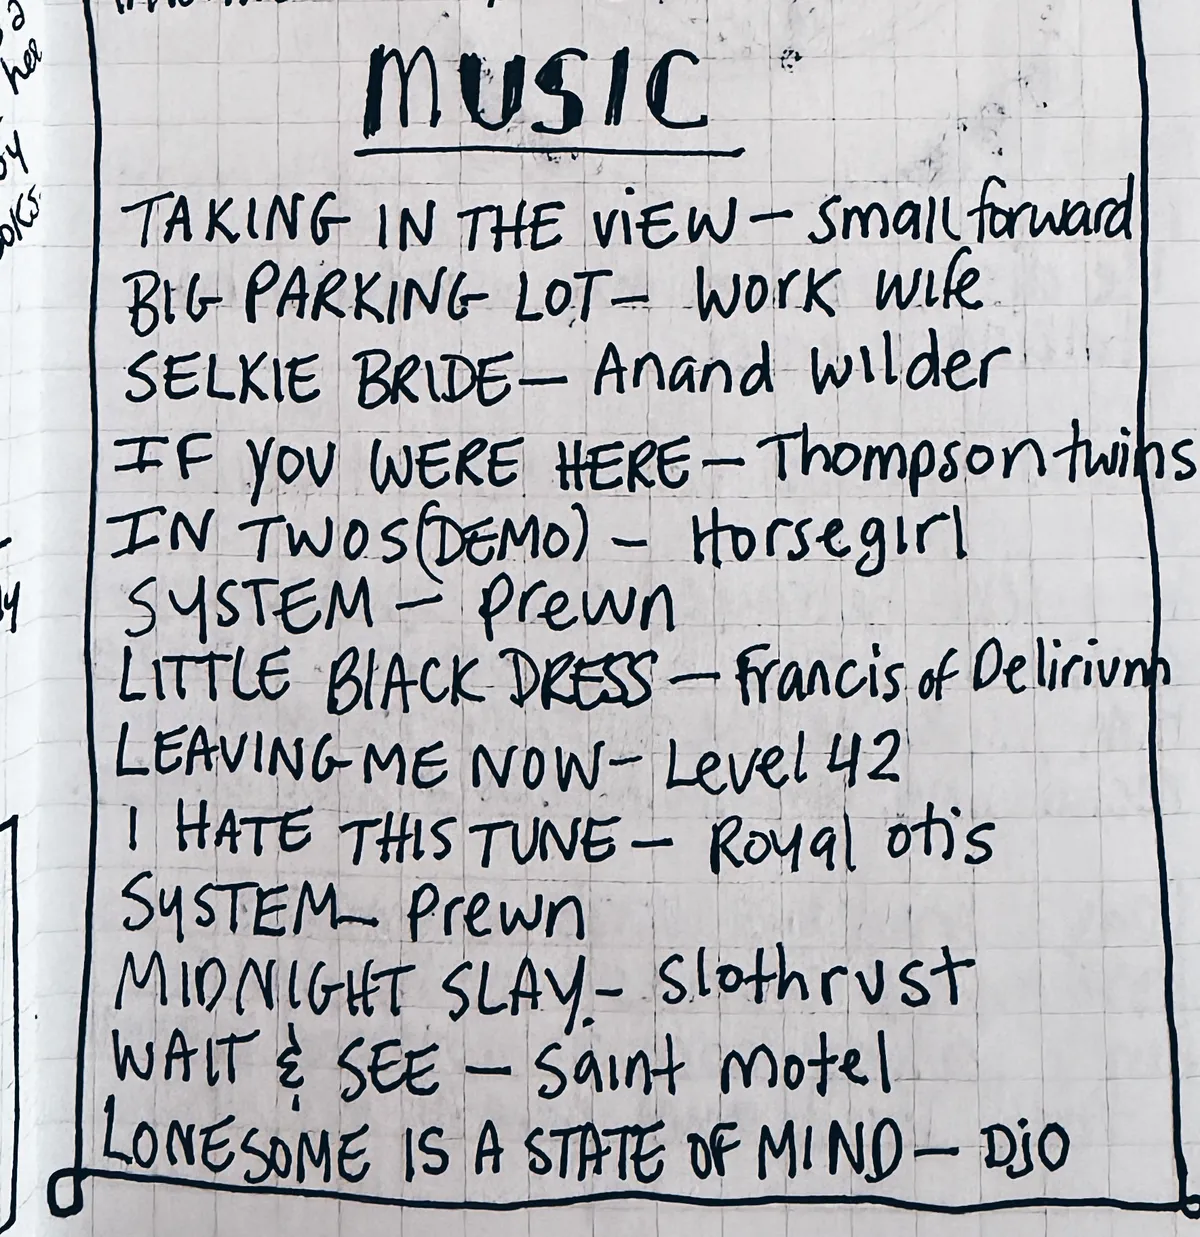 MUSIC
TAKING IN THE VIEW – small forward
BIG PARKING LOT – WORK WIFE
SELKIE BRIDE – Anand Wilder
IF YOU WERE HERE – Thompson twins
IN TWOS (DEMO) – Horsegirl
SYSTEM – Prewn
LITTLE BLACK DRESS – Francis of Delirium
LEAVING ME NOW – Level 42
I HATE THIS TUNE – Royal otis
SYSTEM – Prewn
MIDNIGHT SLAY – Slothrust
WAIT & SEE – Saint Motel
LONESOME IS A STATE OF MIND – Djo